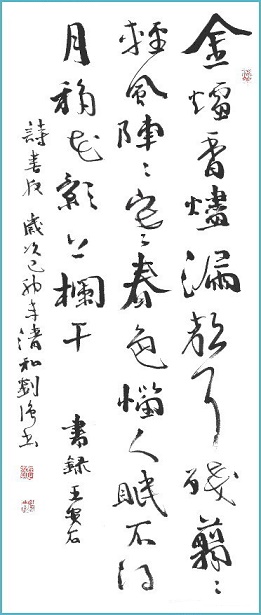 金爐香燼漏聲殘翦〻
輕風陣〻寒春色惱人眠不得
月移花影上欄干 書錄王安石
詩春夜 歲次己年清和劉書